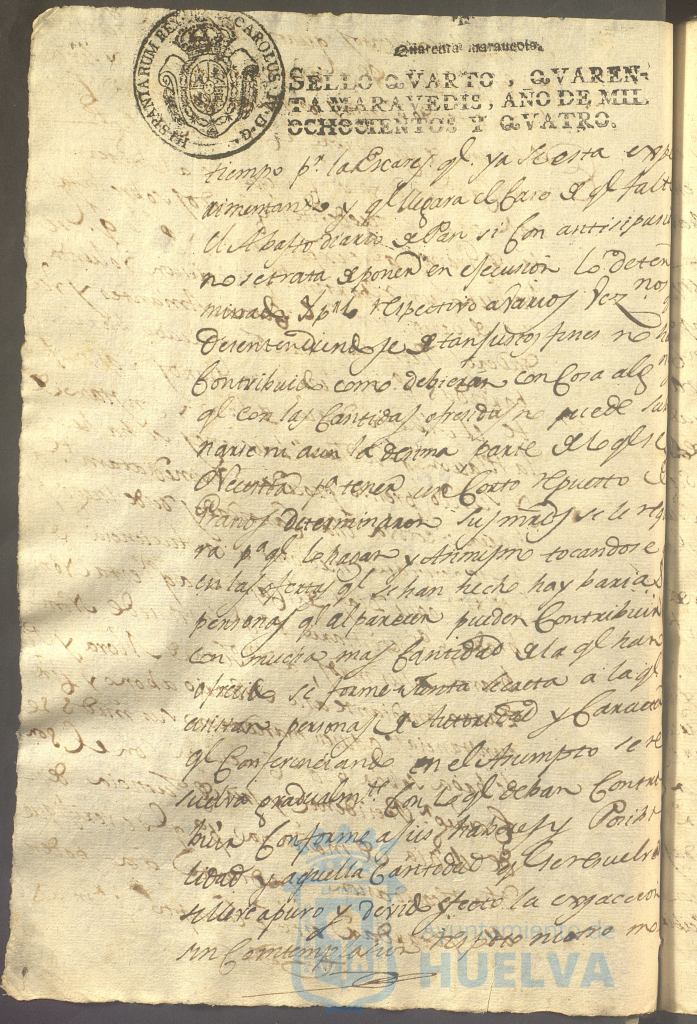 HISPANIARUM REX CAROLUS IV D. G.
Quarenta maravedis.
SELLO QVARTO, QVAREN-
TA MARAVEDIS, AÑO DE MIL
OCHOCIENTOS Y QVATRO.
tiempo pr. la Escares ql. ya se esta expe
rimentando y ql. llegara el Caso de ql. falte
el Abasto diario de Pan si con antisipasn
no se trata de poner en efecusion lo deter
minado respectivo a varios Vez.nos
Desentendiendose de tan justos fines no h
Contribuido como debieran con Cosa alg
ql. con las Cantidas ofresidas no puede su
ni aun la desima parte de lo ql. se
Necesita pa. tener un Corto repuesto d
Granos determinaron sus mrds. se le
ra pa. ql. lo hagan y Asimismo tocandose
en las ofertas ql. se han hecho hay barias
personas ql. al pareser pueden Contribuir
con mucha mas Cantidad de la ql. han
ofresido se forme Junta secreta a la ql.
asistan personas de Autoridad y Caracte
ql. Conferenciando en el Asumpto se re
suelva gradualmte. Con lo ql. deban Contri
buir Conforme a sus haveres y Posibi
lidad y aquella Cantidad ql. se resuelva
se lleve a puro y devido efecto la exsaccion
sin Contemplasion respeto ni otro mo
Ayuntamiento de
HUELVA